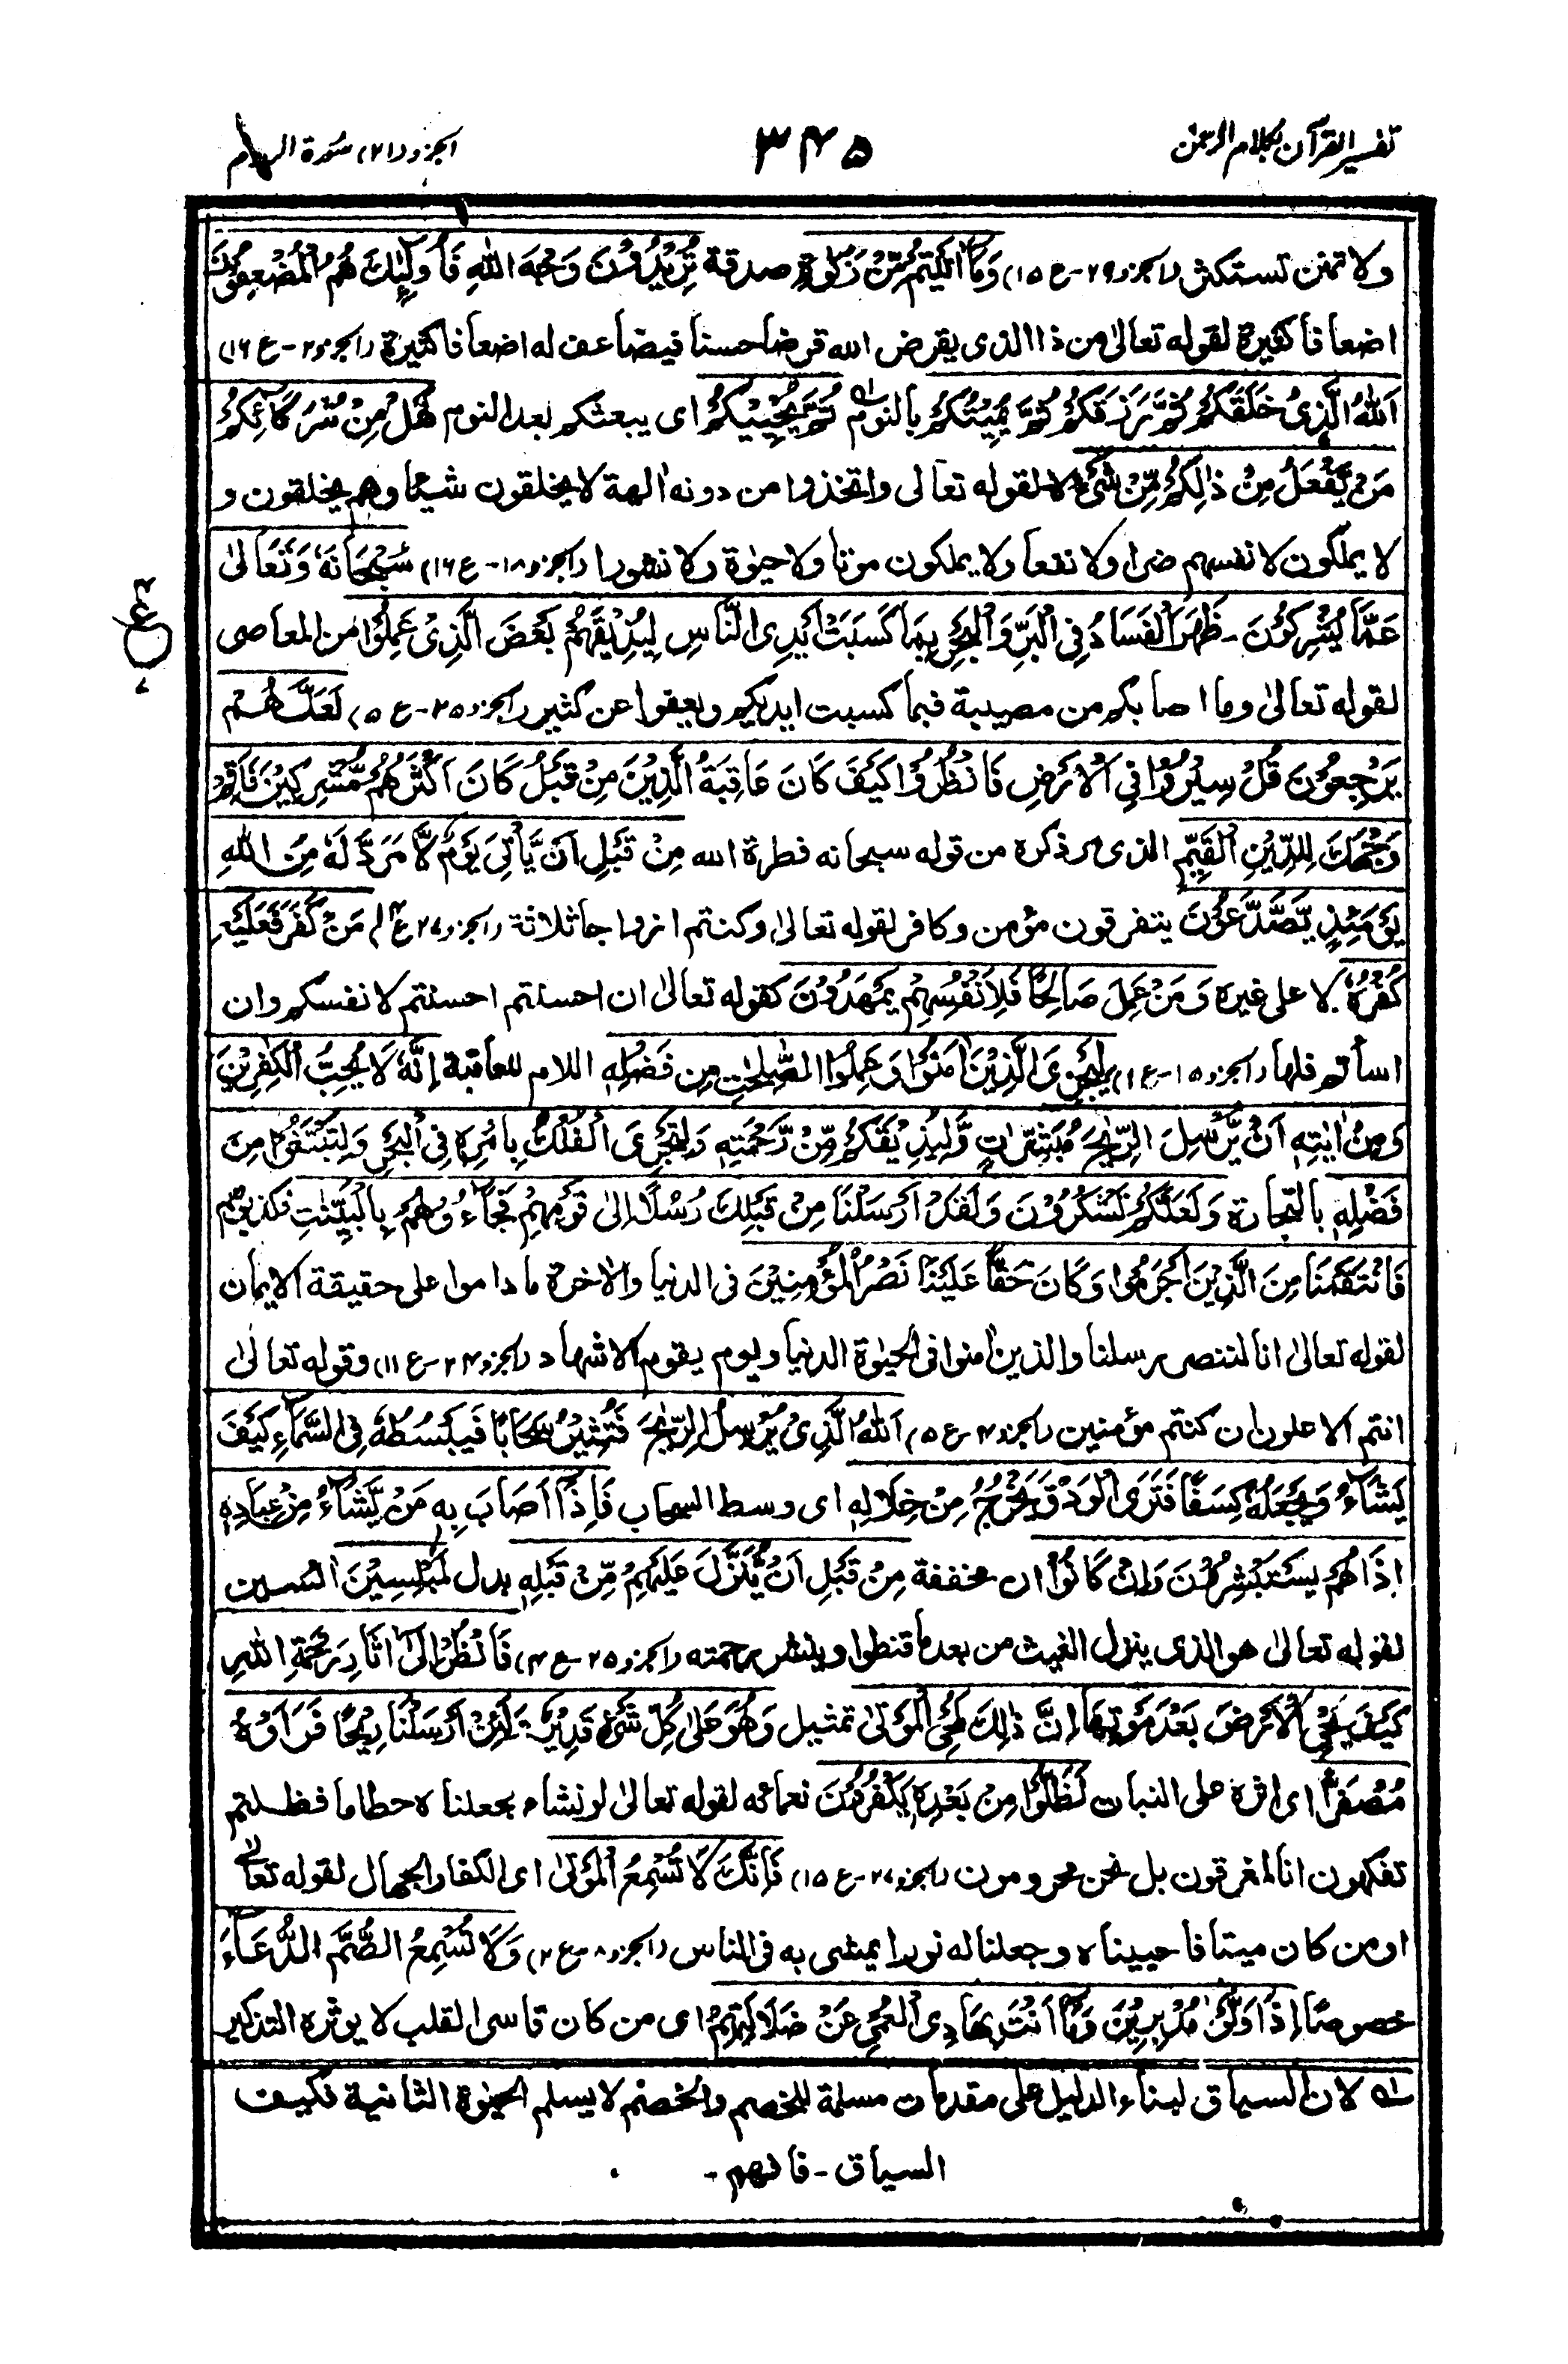 تفسير القرآن بكلام الرحمن ٣٤٥ الجزو (٢١) سورة الروم
ولا تمنن تستكثر (الجزو ٢٩-ع ١٥) وَمَا اٰتَيْتُمْ مِّنْ زَكٰوةٍ صدقة تُرِيْدُوْنَ وَجْهَ اللّٰهِ فَاُولٰٓئِكَ هُمُ الْمُضْعِفُوْنَ
اضعافا كثيرة لقوله تعالىٰ من ذا الذى يقرض الله قرضا حسنا فيضاعف له اضعافا كثيرة (الجزو ٢-ع ١٦)
اَللّٰهُ الَّذِىْ خَلَقَكُمْ ثُمَّ رَزَقَكُمْ ثُمَّ يُمِيْتُكُمْ بالنوم ثُمَّ يُحْيِيْكُمْ اى يبعثكم بعد النوم هَلْ مِنْ شُرَكَآئِكُمْ
مَنْ يَّفْعَلُ مِنْ ذٰلِكُمْ مِّنْ شَىْءٍ لا لقوله تعالى واتخذوا من دونه اٰلهة لا يخلقون شيئا وهم يخلقون و
لا يملكون لانفسهم ضرا ولا نفعا ولا يملكون موتا ولا حيٰوة ولا نشورا (الجزو ١٨-ع ١٦) سُبْحَانَهٗ وَتَعَالىٰ
عَمَّا يُشْرِكُوْنَ - ظَهَرَ الْفَسَادُ فِى الْبَرِّ وَالْبَحْرِ بِمَا كَسَبَتْ اَيْدِى النَّاسِ لِيُذِيْقَهُمْ بَعْضَ الَّذِىْ عَمِلُوْا من المعاصى
ع
لقوله تعالىٰ وما اصابكم من مصيبة فبما كسبت ايديكم ويعفوا عن كثير (الجزو ٢٥-ع ٥) لَعَلَّهُمْ
يَرْجِعُوْنَ قُلْ سِيْرُوْا فِى الْاَرْضِ فَانْظُرُوْا كَيْفَ كَانَ عَاقِبَةُ الَّذِيْنَ مِنْ قَبْلُ كَانَ اَكْثَرُهُمْ مُّشْرِكِيْنَ فَاَقِمْ
وَجْهَكَ لِلدِّيْنِ الْقَيِّمِ الذى مر ذكره من قوله سبحانه فطرة الله مِنْ قَبْلِ اَنْ يَّاْتِىَ يَوْمٌ لَّا مَرَدَّ لَهٗ مِنَ اللّٰهِ
يَوْمَئِذٍ يَّصَّدَّعُوْنَ يتفرقون مؤمن وكافر لقوله تعالىٰ وكنتم ازواجا ثلاثة (الجزو ٢٧ ع ١٤) مَنْ كَفَرَ فَعَلَيْهِ
كُفْرُهٗ لا على غيره وَمَنْ عَمِلَ صَالِحًا فَلِاَنْفُسِهِمْ يَمْهَدُوْنَ كقوله تعالىٰ ان احسنتم احسنتم لانفسكم وان
اسأتم فلها (الجزو ١٥-ع ١) لِيَجْزِىَ الَّذِيْنَ اٰمَنُوْا وَعَمِلُوا الصّٰلِحٰتِ مِنْ فَضْلِهٖ اللام للعاقبة اِنَّهٗ لَا يُحِبُّ الْكٰفِرِيْنَ
وَمِنْ اٰيٰتِهٖ اَنْ يُّرْسِلَ الرِّيٰحَ مُبَشِّرٰتٍ وَّلِيُذِيْقَكُمْ مِّنْ رَّحْمَتِهٖ وَلِتَجْرِىَ الْفُلْكُ بِاَمْرِهٖ فِى الْبَحْرِ وَلِتَبْتَغُوْا مِنْ
فَضْلِهٖ بالتجارة وَلَعَلَّكُمْ تَشْكُرُوْنَ وَلَقَدْ اَرْسَلْنَا مِنْ قَبْلِكَ رُسُلًا اِلىٰ قَوْمِهِمْ فَجَآءُوْهُمْ بِالْبَيِّنٰتِ فكذبوهم
فَانْتَقَمْنَا مِنَ الَّذِيْنَ اَجْرَمُوْا وَكَانَ حَقًّا عَلَيْنَا نَصْرُ الْمُؤْمِنِيْنَ فى الدنيا والاٰخرة ما داموا على حقيقة الايمان
لقوله تعالىٰ انا لننصر رسلنا والذين اٰمنوا فى الحيٰوة الدنيا ويوم يقوم الاشهاد (الجزو ٢٤-ع ١١) وقوله تعالىٰ
انتم الاعلون ان كنتم مؤمنين (الجزو ٤-ع ٥) اَللّٰهُ الَّذِىْ يُرْسِلُ الرِّيٰحَ فَتُثِيْرُ سَحَابًا فَيَبْسُطُهٗ فِى السَّمَآءِ كَيْفَ
يَشَآءُ وَيَجْعَلُهٗ كِسَفًا فَتَرَى الْوَدْقَ يَخْرُجُ مِنْ خِلَالِهٖ اى وسط السحاب فَاِذَآ اَصَابَ بِهٖ مَنْ يَّشَآءُ مِنْ عِبَادِهٖ
اِذَا هُمْ يَسْتَبْشِرُوْنَ وَاِنْ كَانُوْا ان مخففة مِنْ قَبْلِ اَنْ يُّنَزَّلَ عَلَيْهِمْ مِّنْ قَبْلِهٖ بدل لَمُبْلِسِيْنَ اٰئسين
لقوله تعالىٰ هو الذى ينزل الغيث من بعد ما قنطوا وينشر رحمته (الجزو ٢٥-ع ٤) فَانْظُرْ اِلىٰٓ اٰثَارِ رَحْمَةِ اللّٰهِ
كَيْفَ يُحْىِ الْاَرْضَ بَعْدَ مَوْتِهَا اِنَّ ذٰلِكَ لَمُحْىِ الْمَوْتىٰ تمثيل وَهُوَ عَلىٰ كُلِّ شَىْءٍ قَدِيْرٌ وَلَئِنْ اَرْسَلْنَا رِيْحًا فَرَاَوْهُ
مُصْفَرًّا اى اثره على النبات لَظَلُّوْا مِنْ بَعْدِهٖ يَكْفُرُوْنَ نعمائه لقوله تعالىٰ لو نشاء لجعلناه حطاما فظلتم
تفكهون انا لمغرمون بل نحن محرومون (الجزو ٢٧-ع ١٥) فَاِنَّكَ لَا تُسْمِعُ الْمَوْتىٰ اى الكفار الجهال لقوله تعالىٰ
اومن كان ميتا فاحييناه وجعلنا له نورا يمشى به فى الناس (الجزو ٨-ع ٢) وَلَا تُسْمِعُ الصُّمَّ الدُّعَآءَ
خصوصًا اِذَا وَلَّوْا مُدْبِرِيْنَ وَمَآ اَنْتَ بِهَادِى الْعُمْىِ عَنْ ضَلَالَتِهِمْ اى من كان قاسى القلب لا يؤثره التذكير
له لان السياق لبناء الدليل على مقدمات مسلمة للخصم والخصم لا يسلم الحيٰوة الثانية فكيف
السياق - فافهم -